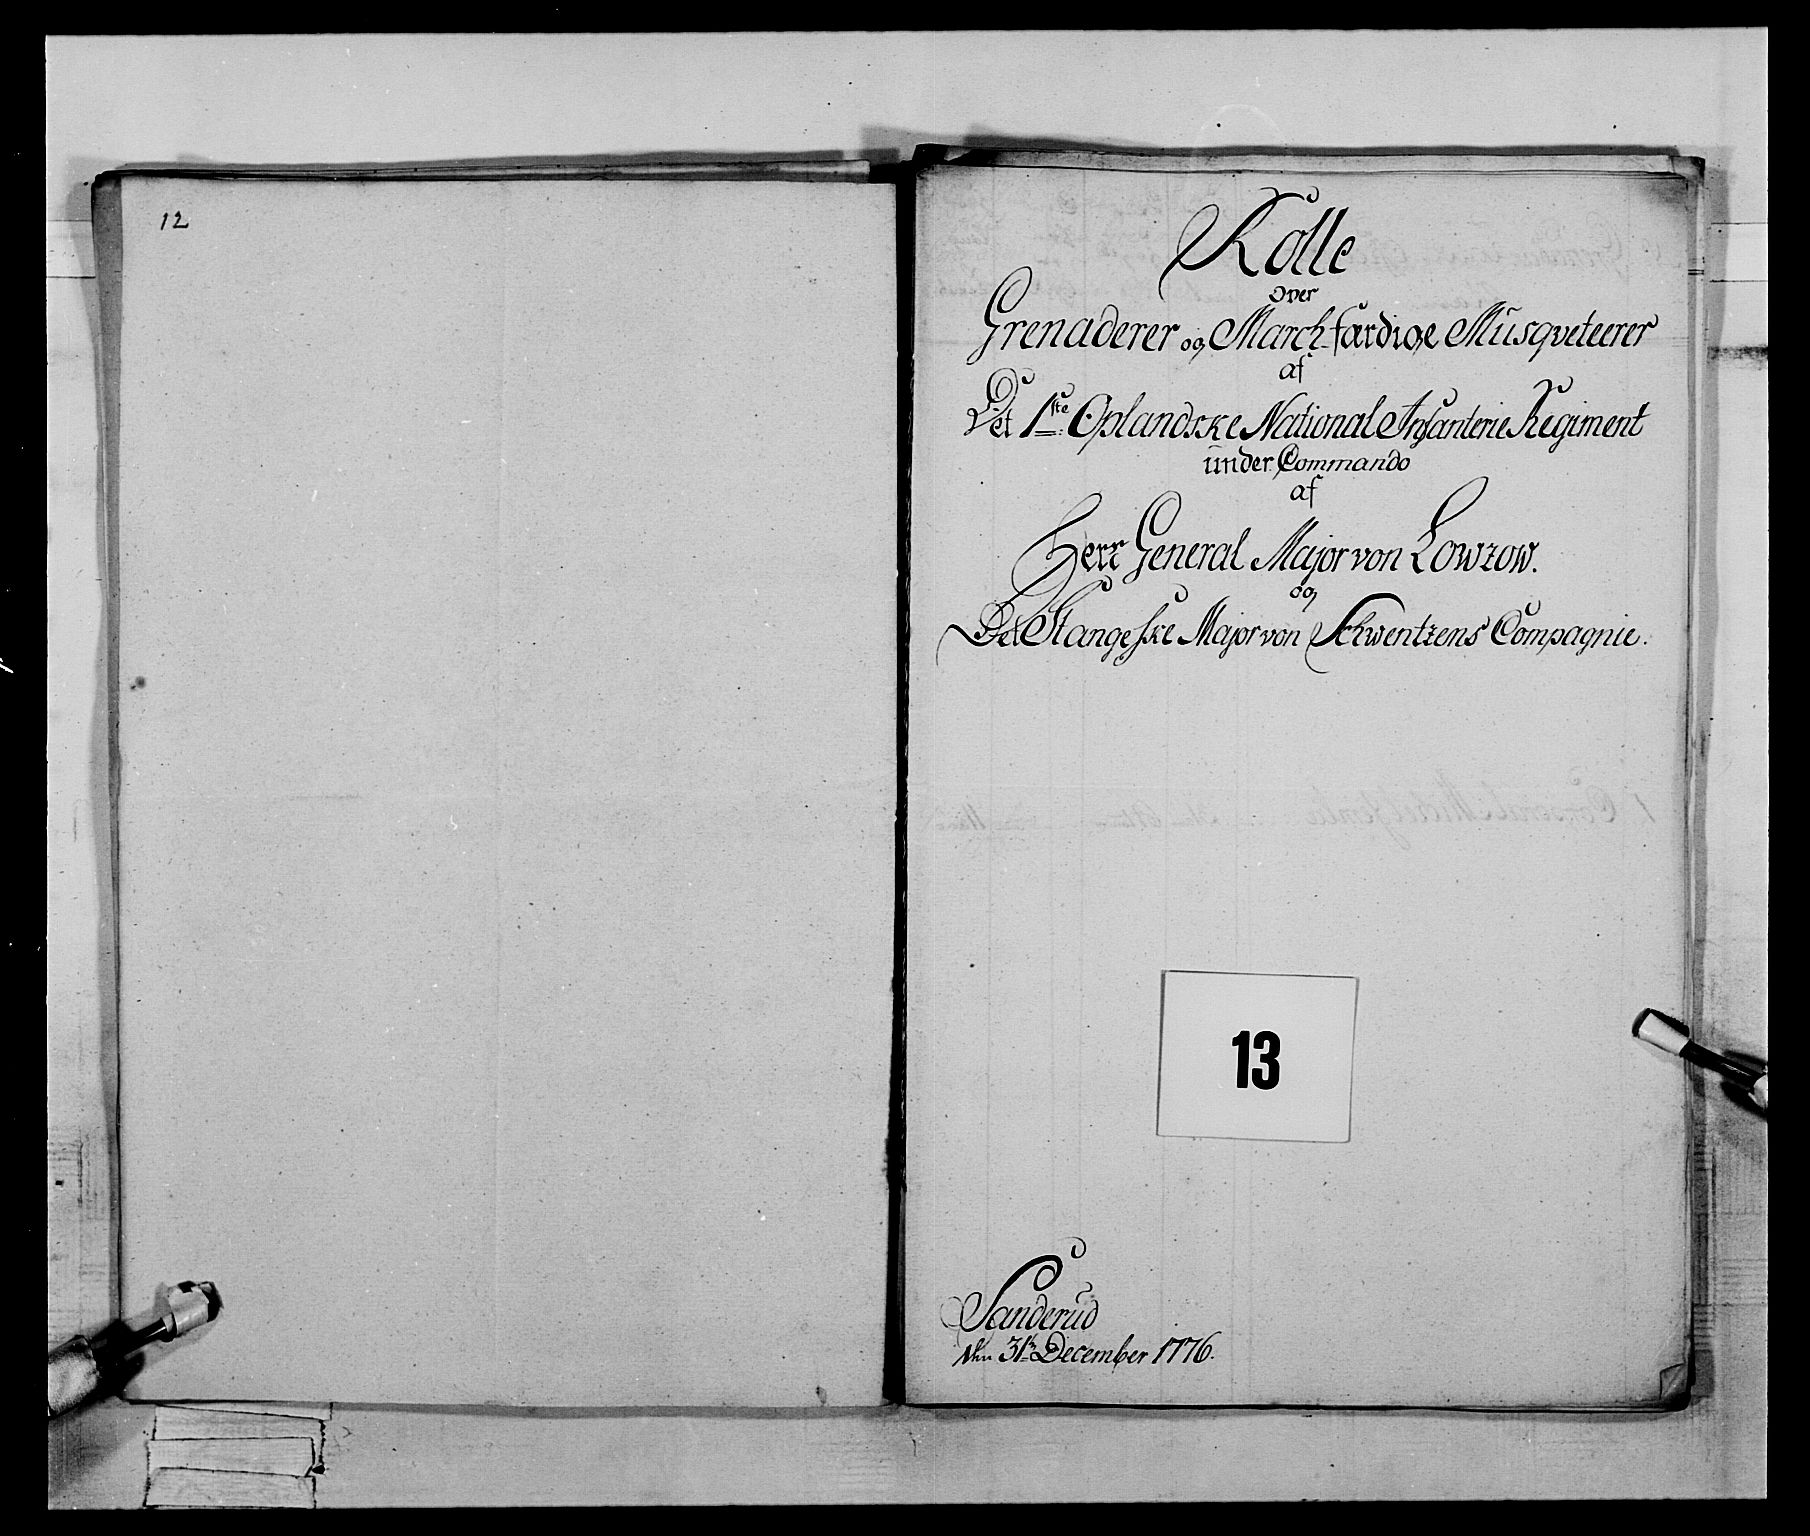 12
Rolle
over
Grenaderer og March-færdige Musqveteerer
af
Det 1ste Oplandske National Infanterie Regiment
under Commando
af
Herr General Major von Lowzow.
og
Det Stangeske Major von Schwentzens Compagnie.
13
Sanderud
den 31te December 1776.